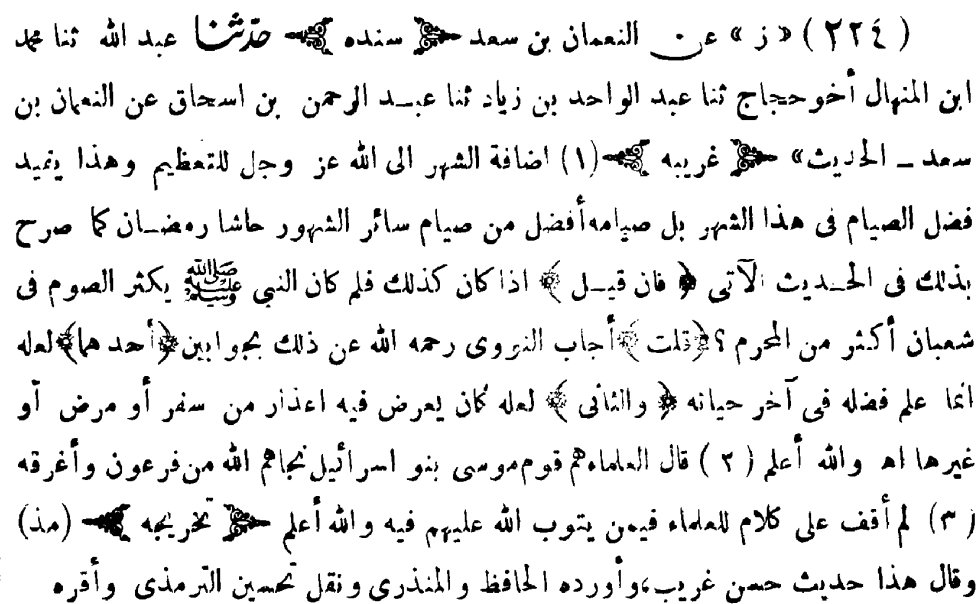 (٢٢٤) «ز» عن النعمان بن سعد ﴿ سنده ﴾ حدثنا عبد الله ثنا محمد
ابن المنهال أخو حجاج ثنا عبد الواحد بن زياد ثنا عبد الرحمن بن اسحاق عن النعمان بن
سعد ــ الحديث» ﴿ غريبه ﴾ (١) اضافة الشهر الى الله عز وجل للتعظيم وهذا يفيد
فضل الصيام فى هذا الشهر بل صيامه أفضل من صيام سائر الشهور حاشا رمضان كما صرح
بذلك فى الحديث الآتى ﴿ فان قيل ﴾ اذا كان كذلك فلم كان النبى ﷺ يكثر الصوم فى
شعبان أكثر من المحرم ؟ ﴿قلت﴾ أجاب النووى رحمه الله عن ذلك بجوابين ﴿أحدهما﴾ لعله
انما علم فضله فى آخر حياته ﴿ والثانى ﴾ لعله كان يعرض فيه اعذار من سفر أو مرض أو
غيرها اهـ والله أعلم (٢) قال العلماء هم قوم موسى بنو اسرائيل نجاهم الله من فرعون وأغرقه
(٣) لم أقف على كلام للعلماء فيمن يتوب الله عليهم فيه والله أعلم ﴿ تخريجه ﴾ (مذ)
وقال هذا حديث حسن غريب، وأورده الحافظ والمنذرى ونقل تحسين الترمذى وأقره